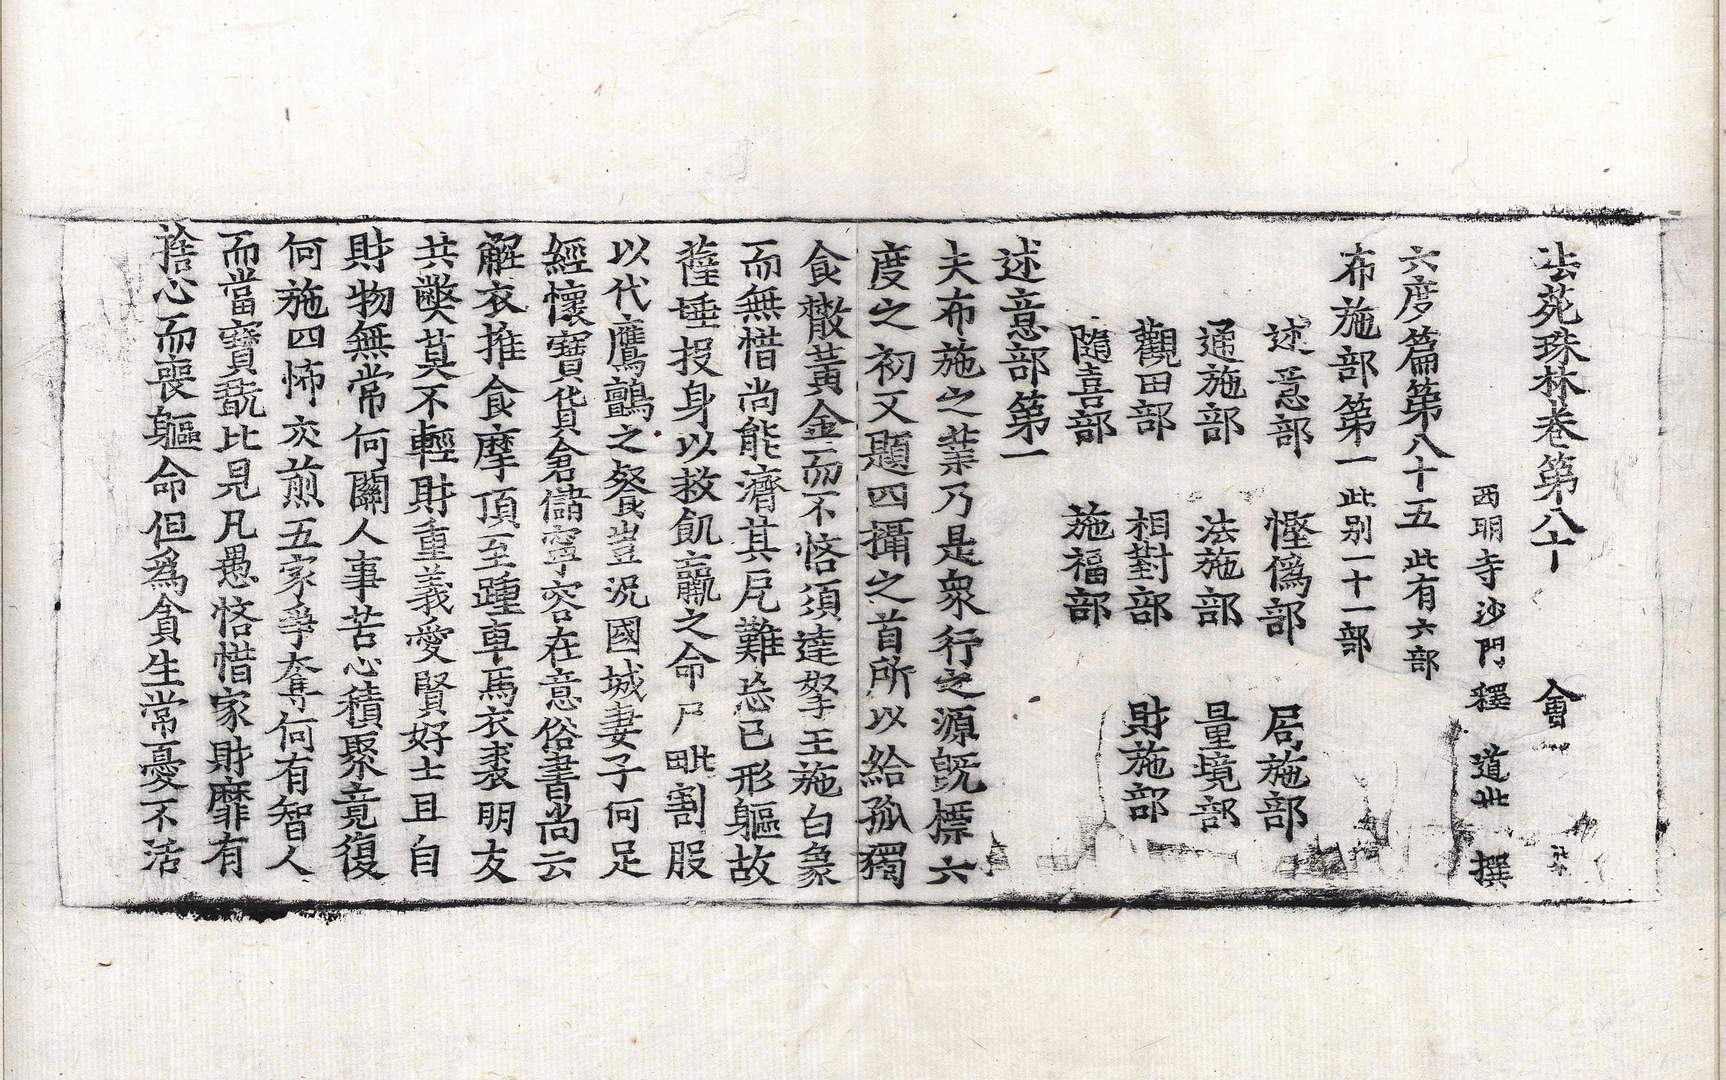 法苑珠林卷第八十　會
西明寺沙門釋　道世　撰
六度篇第八十五此有六部
布施部第一此別一十一部
述意部　慳僞部　局施部
通施部　法施部　量境部
觀田部　相對部　財施部
隨喜部　施福部
述意部第一
夫布施之業乃是衆行之源旣標六
度之初又題四攝之首所以給孤獨
食散黃金而不悋須達拏王施白象
而無惜尚能濟其厄難忘已形軀故
薩埵投身以救飢羸之命尸毗割股
以代鷹鸇之飡豈況國城妻子何足
經懷寶貨倉儲寧容在意俗書尚云
解衣推食摩頂至踵車馬衣裘朋友
共弊莫不輕財重義愛賢好士且自
財物無常何關人事苦心積聚竟復
何施四怖交煎五家爭奪何有智人
而當寶翫比見凡愚悋惜家財靡有
捨心而喪軀命但爲貪生常憂不活